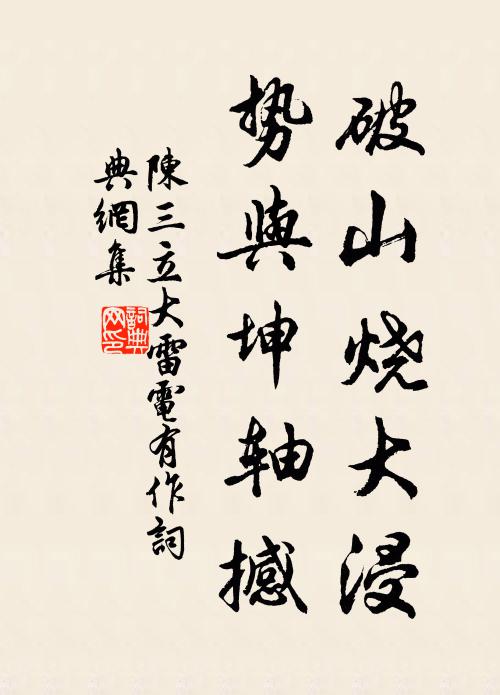 破山烧大浸
势與坤轴撼
陳三立大雷電有作詞
典網集
詞典
网印